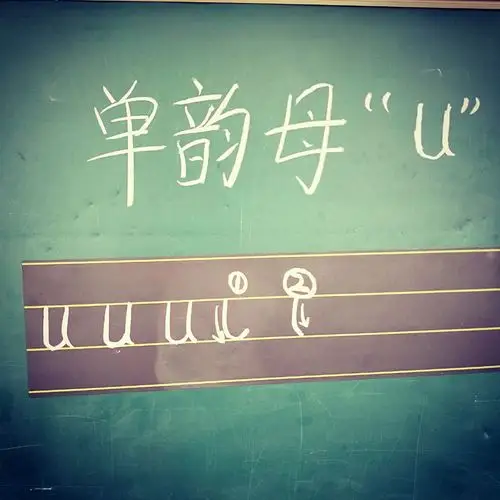 单韵母“u”
u u u ① ②